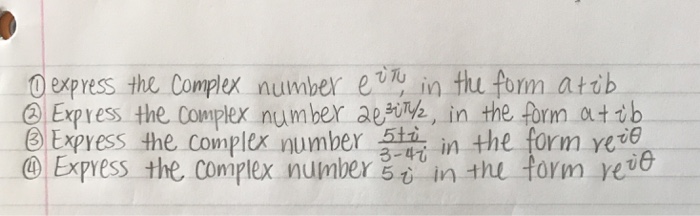 ① express the complex number e^{iπ}, in the form a+ib
② Express the complex number 2e^{3iπ/2}, in the form a+ib
③ Express the complex number \frac{5+i}{3-4i} in the form re^{iθ}
④ Express the complex number 5i in the form re^{iθ}